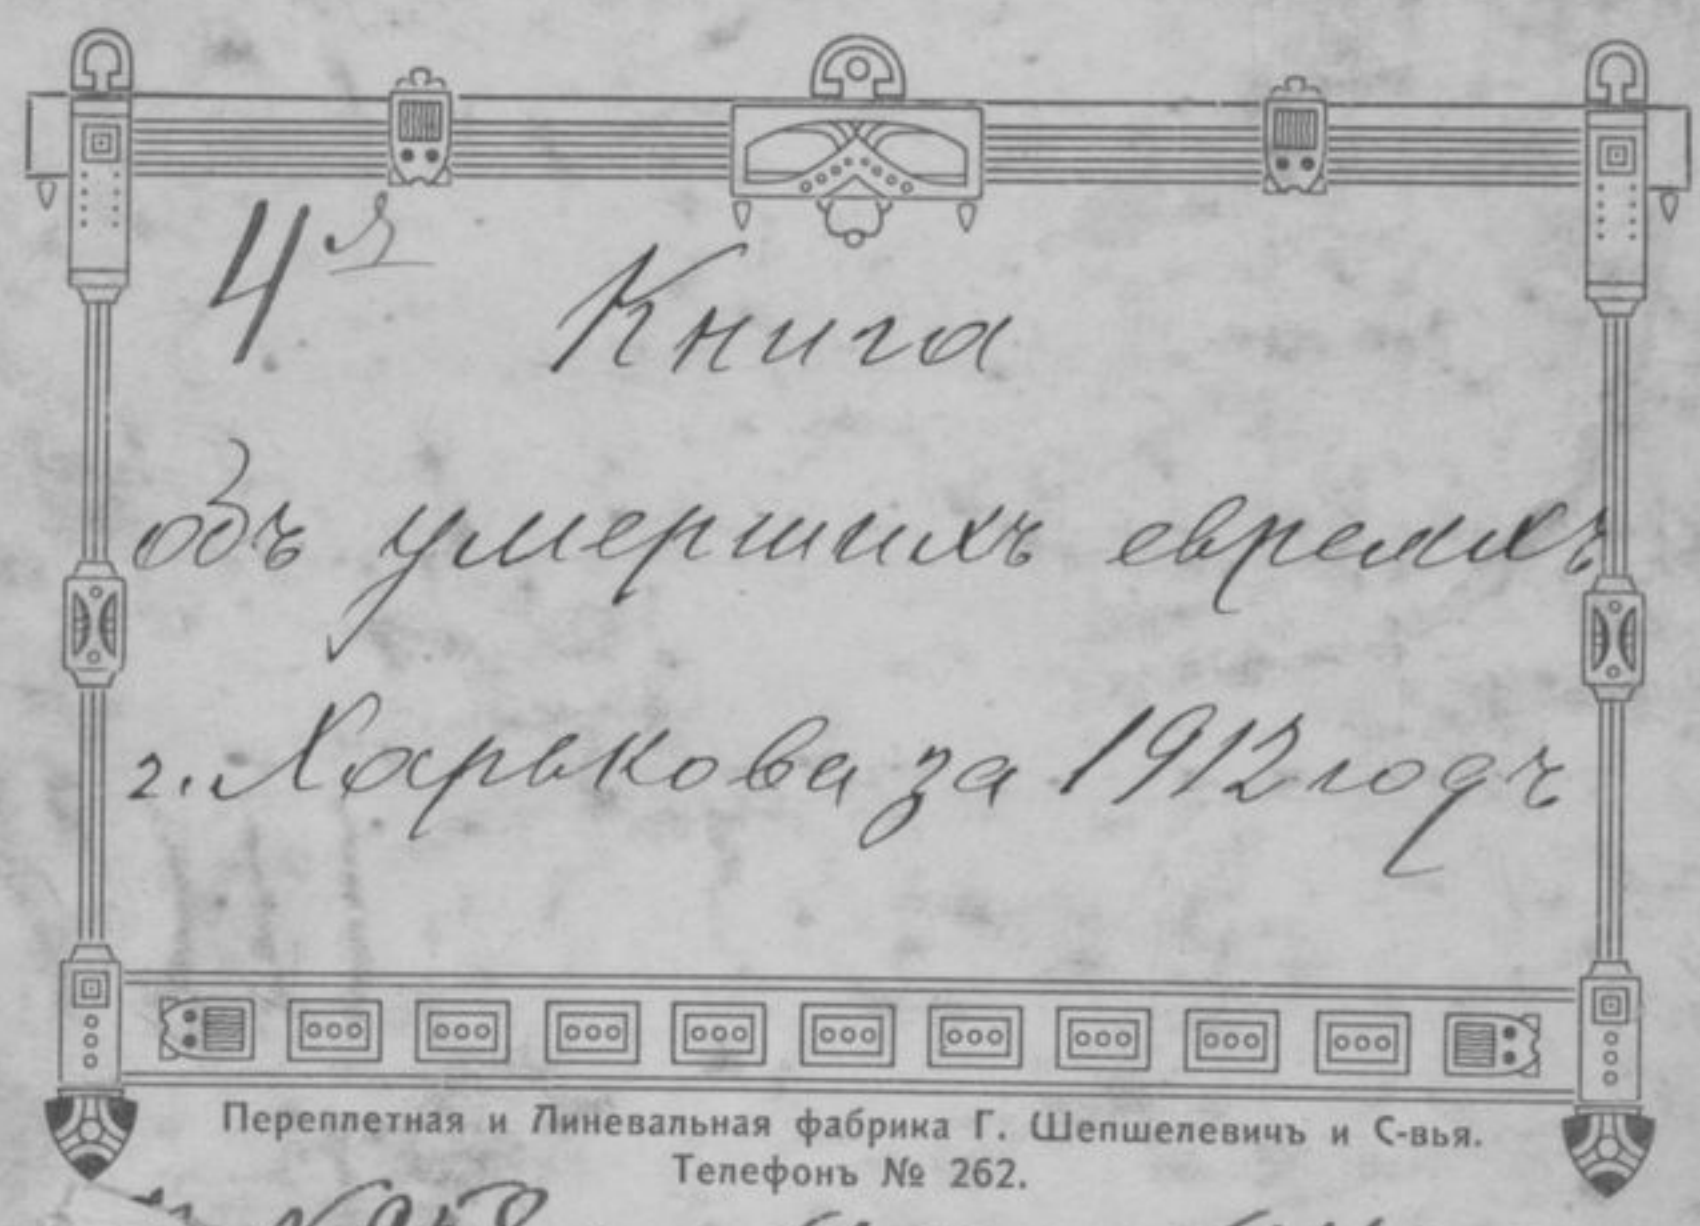 4я
Книга
объ умершихъ евреяхъ
г. Харькова за 1912 годъ
Переплетная и Линевальная фабрика Г. Шепшелевичъ и С-вья.
Телефонъ № 262.